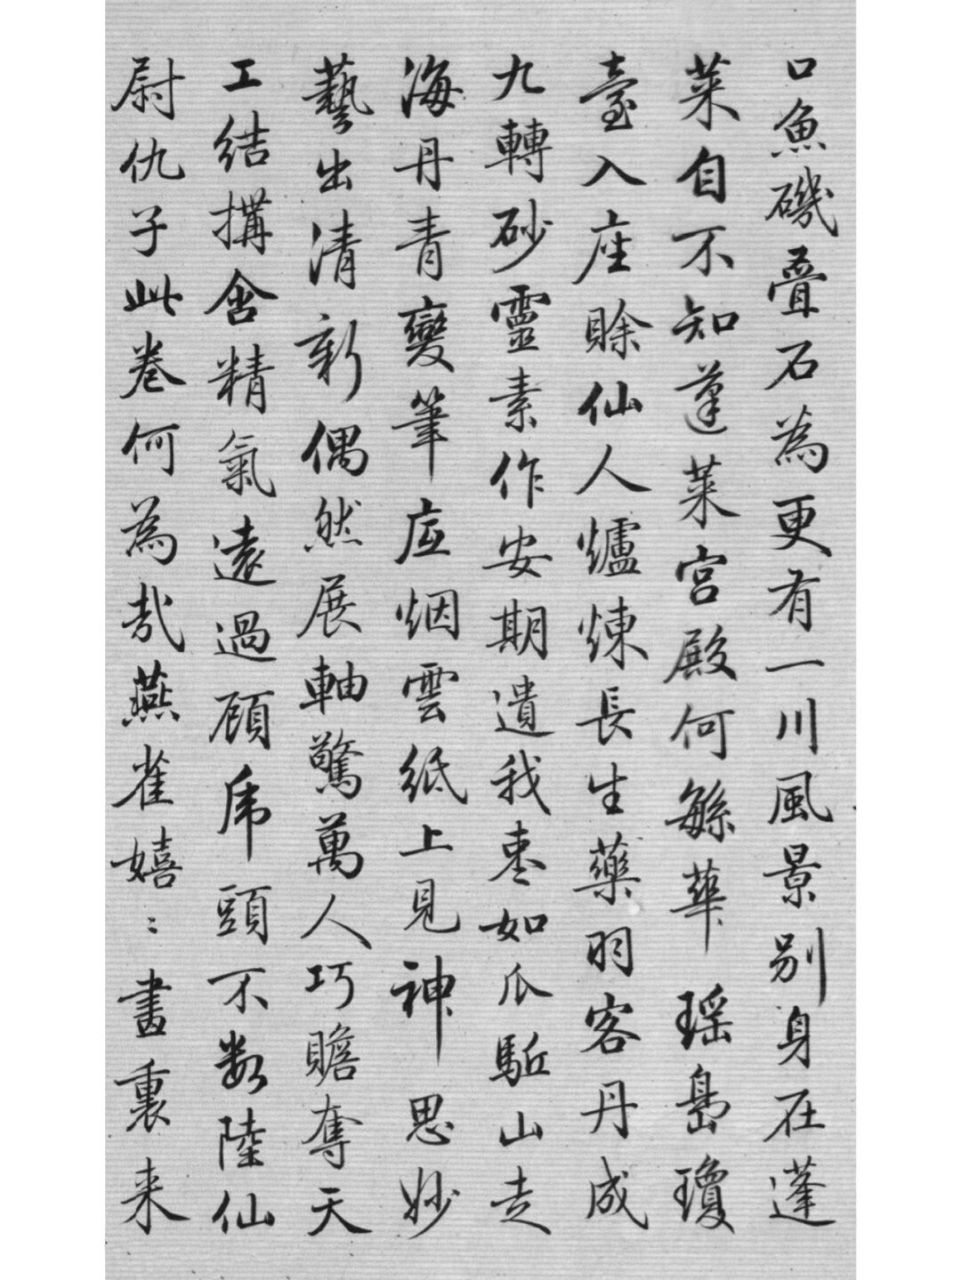 口魚磯叠石為更有一川風景別身在蓬
萊自不知蓬萊宮殿何緐華瑶島瓊
臺入座賒仙人爐煉長生藥羽客丹成
九轉砂靈素作安期遺我棗如瓜駈山走
海丹青變筆底烟雲紙上見神思妙
藝出清新偶然展軸驚萬人巧贍奪天
工結搆含精氣遠過顧虎頭不数陸仙
尉仇子此卷何為哉燕雀嬉〻畫裏来